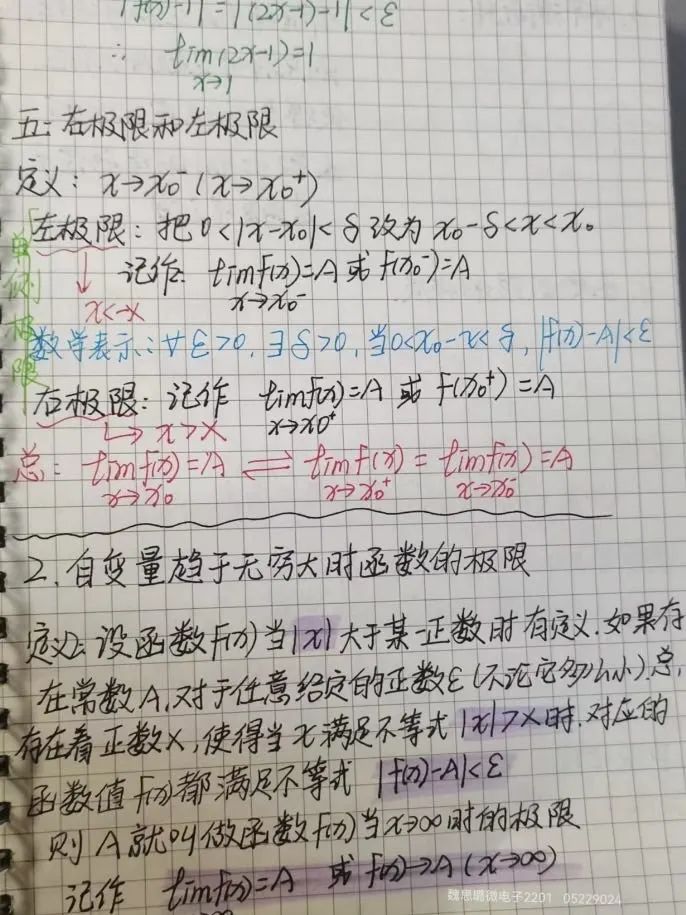 |f(x)-1|=|(2x-1)-1|<ε
∴ lim(2x-1)=1
x→1
五:右极限和左极限
定义: x→x₀⁻(x→x₀⁺)
单侧极限
左极限: 把0<|x-x₀|<δ改为 x₀-δ<x<x₀
记作: limf(x)=A 或 f(x₀⁻)=A
x→x₀⁻
x<-X
数学表示: ∀ε>0, ∃δ>0, 当0<x₀-x<δ, |f(x)-A|<ε
右极限: 记作 limf(x)=A 或 f(x₀⁺)=A
x→x₀⁺
↳ x>X
总: limf(x)=A ⇌ limf(x)=limf(x)=A
x→x₀ x→x₀⁺ x→x₀⁻
2. 自变量趋于无穷大时函数的极限
定义2: 设函数f(x)当|x|大于某一正数时有定义.如果存
在常数A,对于任意给定的正数ε(不论它多么小)总,
存在着正数X,使得当x满足不等式|x|>X时.对应的
函数值f(x)都满足不等式 |f(x)-A|<ε
则A就叫做函数f(x)当x→∞时的极限
记作 limf(x)=A 或 f(x)→A(x→∞)
魏思璐微电子2201 05229024